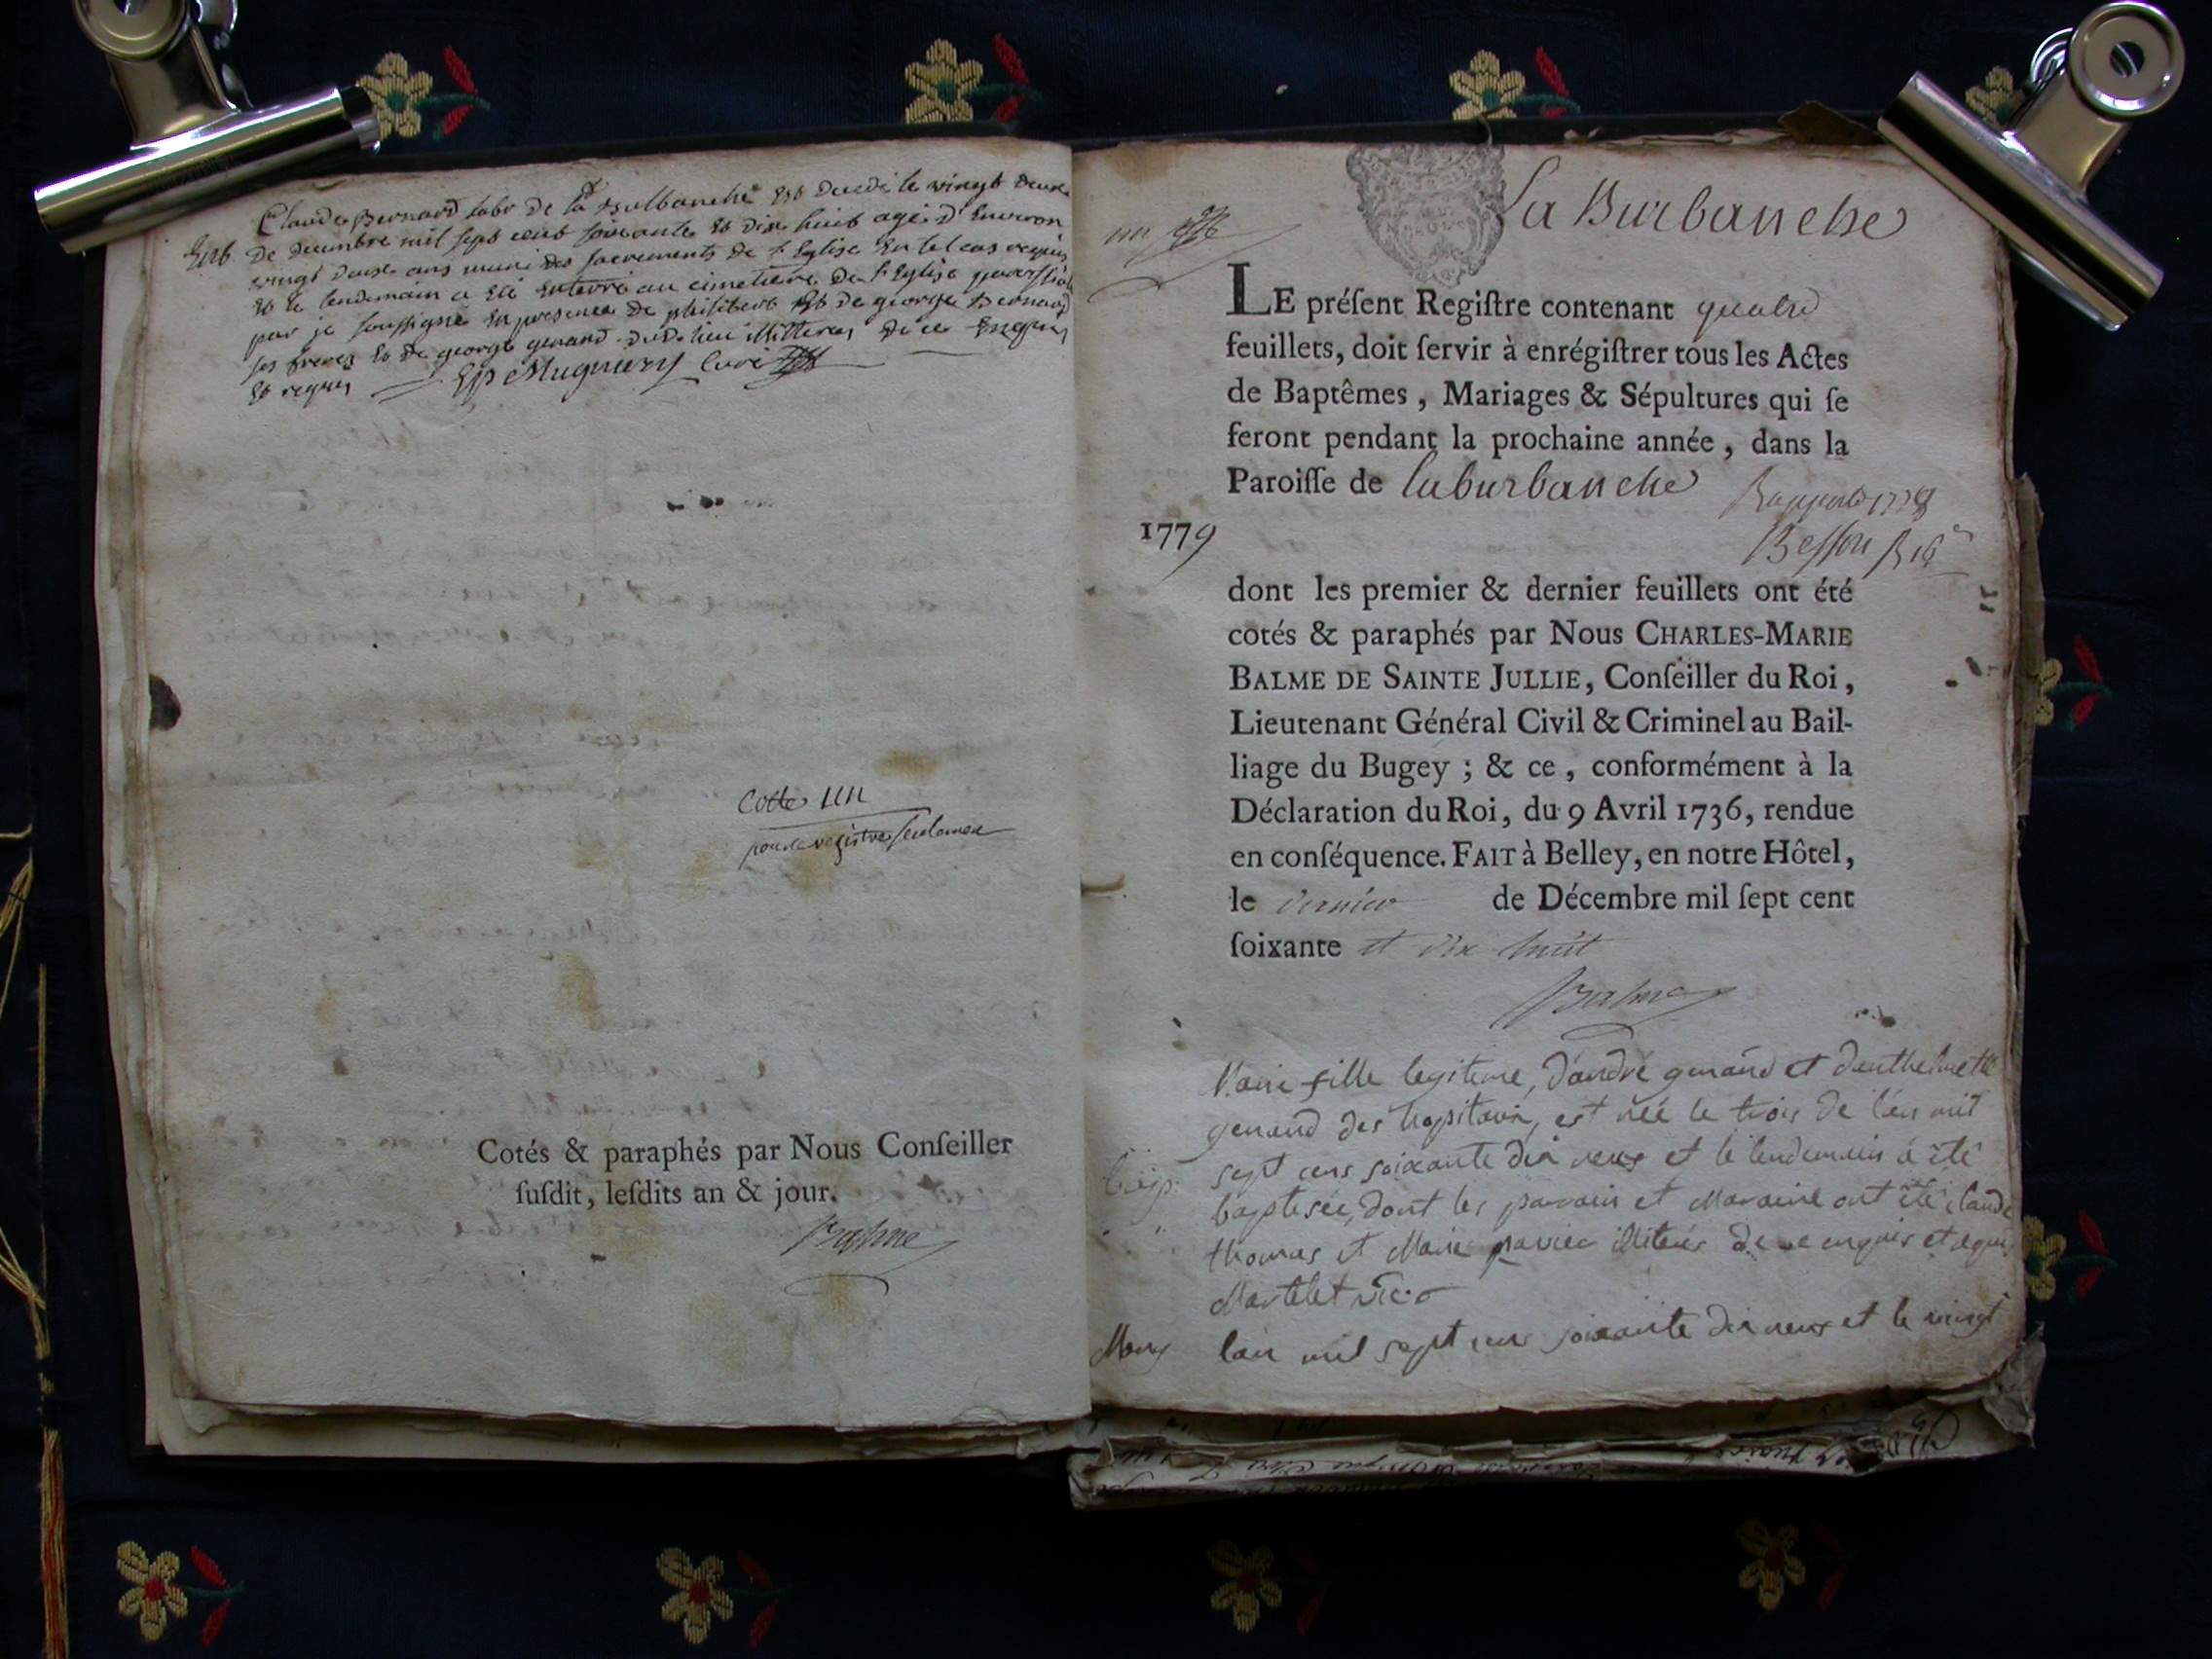 Claude Bernard labr de la Bulbanche est decedé le vingt deux
Ent. de decembre mil sept cent soixante et dix huit agé d'environ
vingt deux ans muni des sacrements de s. Eglise en tel cas requis
et le lendemain a été enterré au cimetiere de s. Eglise parroissiale
par je soussigné en presence de philibert et de george Bernard
ses freres et de george genand dud. lieu illitteres de ce enquis
et requis Mugniery Curé
Cotte un
pour le registre seulement
Cotés & paraphés par Nous Conſeiller
ſuſdit, leſdits an & jour.
Balme
un
La Burbanche
LE préſent Regiſtre contenant quatre
feuillets, doit ſervir à enrégiſtrer tous les Actes
de Baptêmes, Mariages & Sépultures qui ſe
feront pendant la prochaine année, dans la
Paroiſſe de laburbanche
Rapporté 1778
1779
Besson
dont les premier & dernier feuillets ont été
cotés & paraphés par Nous CHARLES-MARIE
BALME DE SAINTE JULLIE, Conſeiller du Roi,
Lieutenant Général Civil & Criminel au Bail-
liage du Bugey ; & ce, conformément à la
Déclaration du Roi, du 9 Avril 1736, rendue
en conſéquence. FAIT à Belley, en notre Hôtel,
le dernier de Décembre mil ſept cent
ſoixante et dix huit
Balme
Marie fille legitime, d'andré genand et d'anthelmette
genand des hopitaux, est née le trois de l'en mil
sept cens soixante dix neuf et le lendemain à été
Bap. baptisée, dont les parain et Maraine ont été claude
thomas et Marie pavier illiterés de ce enquis et requis
Martelet vic.
Mary l'an mil sept cens soixante dix neuf et le vingt